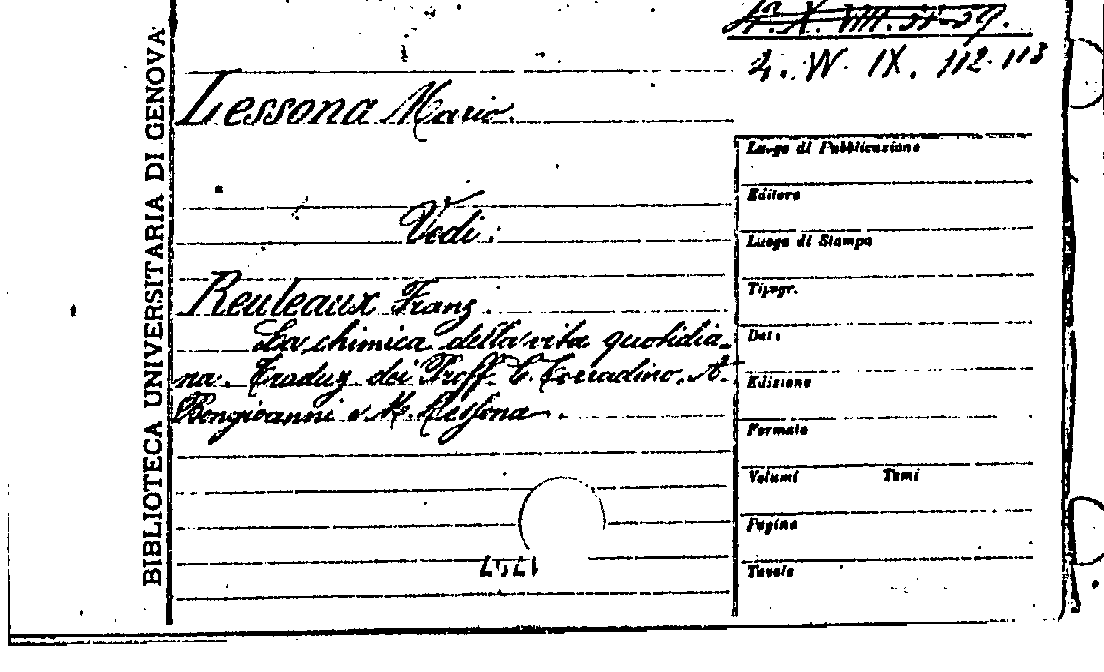 2. W. IX. 112-113
Lessona Mario.
Vedi:
Reuleaux Franz.
La chimica della vita quotidia-
na. Traduz dei Proff. C. Corradino, A.
Bongiovanni e M. Lessona.
BIBLIOTECA UNIVERSITARIA DI GENOVA
Luogo di Pubblicazione
Editore
Luogo di Stampa
Tipogr.
Data
Edizione
Formato
Volumi Tomi
Pagine
Tavole